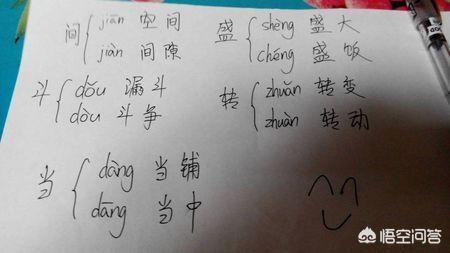 间 { jiān 空间
jiàn 间隙
盛 { shèng 盛大
chéng 盛饭
斗 { dǒu 漏斗
dòu 斗争
转 { zhuǎn 转变
zhuàn 转动
当 { dàng 当铺
dāng 当中
悟空问答